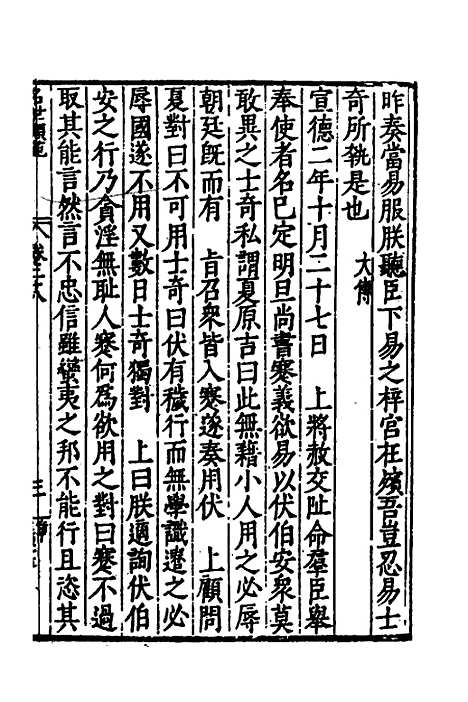 昨奏當易服朕聽臣下易之梓宮在殯吾豈忍易士
奇所執是也　大傳
宣德二年十月二十七日　上將赦交阯命羣臣舉
奉使者名已定明旦尚書蹇義欲易以伏伯安衆莫
敢異之士奇私謂夏原吉曰此無藉小人用之必辱
朝廷旣而有　旨召衆皆入蹇遂奏用伏　上顧問
夏對曰不可用士奇曰伏有穢行而無學識遣之必
辱國遂不用又數日士奇獨對　上曰朕適詢伏伯
安之行乃貪淫無恥人蹇何爲欲用之對曰蹇不過
取其能言然言不忠信雖蠻夷之邦不能行且恣其
名世類苑　卷三十八　三